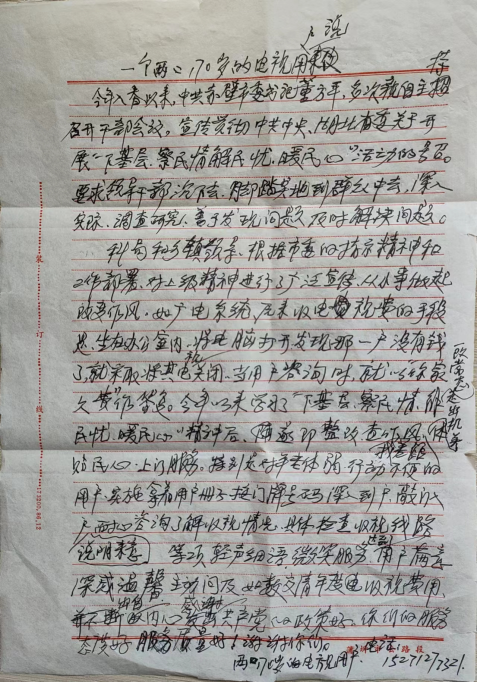 户说
一个两口70岁的电视用
今年入春以来,中共赤壁市委书记董方平,多次亲自主持
召开干部会议。宣传贯彻中共中央、湖北省委关于开
展"下基层、察民情解民忧、暖民心"活动的号召。
要求领导干部沉下去,脚踏实地到群众中去,深入
实际、调查研究、善于发现问题及时解决问题。
科局和乡镇领导,根据市委的指示精神和
工作部署,对上级精神进行了广泛宣传,从小事做起
改善作风,如广电系统,原来收电视费的手段
是坐在办公室内,将电脑打开发现那一户没有钱
了,就采取将其电视关闭。当用户咨询时,就以你家
欠费作答。今年以来学习了"下基层、察民情、解
民忧、暖民心"精神后,随即整改查作风,
民心,上门服务。特别是对年老体弱、行动不便的
用户,实施拿着用户册子按门牌号码深入到户敲门
入户,咨询了解收视情况,具体检查收视线路
说明来意 等项,轻声细语,微笑服务,达到用户满意
深感温馨,主动问及如数交清年度电收视费用,
并不断 共产党的政策好,你们的服务
态度好,服务质量好!谢谢你们。
两口70岁的电视用户 电话:15271277321.
装订线